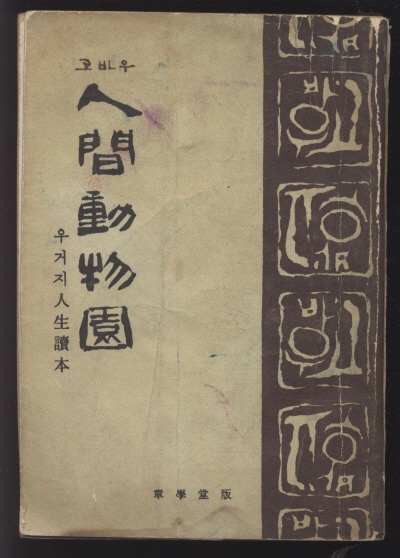 고바우
人間動物園
우거지人生讀本
章學堂版